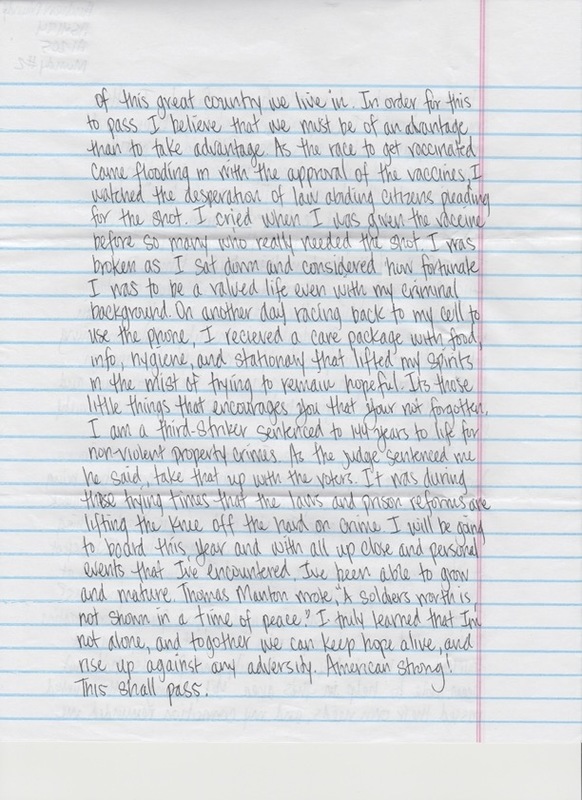 of this great country we live in. In order for this
to pass I believe that we must be of an advantage
than to take advantage. As the race to get vaccinated
came flooding in with the approval of the vaccines, I
watched the desperation of law abiding citizens pleading
for the shot. I cried when I was given the vaccine
before so many who really needed the shot. I was
broken as I sat down and considered how fortunate
I was to be a valued life even with my criminal
background. On another day racing back to my cell to
use the phone, I recieved a care package with food,
info, hygiene, and stationary that lifted my spirits
in the mist of trying to remain hopeful. Its those
little things that encourages you that your not forgotten.
I am a third-striker sentenced to 144 years to life for
non-violent property crimes. As the judge sentenced me
he said, take that up with the voters. It was during
those trying times that the laws and prison reforms are
lifting the knee off the hard on crime. I will be going
to board this year and with all up close and personal
events that I've encountered, I've been able to grow
and mature. Thomas Manton wrote, "A soldiers worth is
not shown in a time of peace." I truly learned that I'm
not alone, and together we can keep hope alive, and
rise up against any adversity. American strong!
This shall pass.